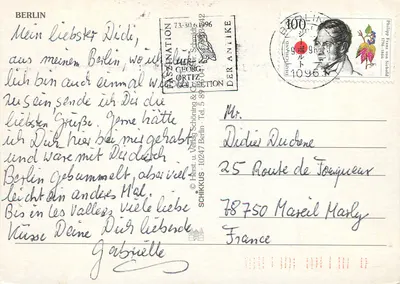 BERLIN
Mein liebster Didi,
aus meinem Berlin, wo
ich bin auch einmal war
zu sein, sende ich Dir die
liebsten Grüße. Gerne hätte
ich Dich hier bei mir gehabt
und wäre mit Dir durch
Berlin gebummelt, aber viel-
leicht ein anderes Mal.
Bis in les Valles, viele liebe
Küsse Deine Dich liebende
Gabriele
23.-30.6.1996
FASZINATION
DER ANTIKE
GEORGE
ORTIZ
COLLECTION
BERLIN
1096
100
Philipp Franz von Siebold
1796-1866
SCHIKKUS · 10247 Berlin · Tel. 5 89
Mr.
Didier Duchene
25 Route de Tonqueux
78750 Mareil Marly
France